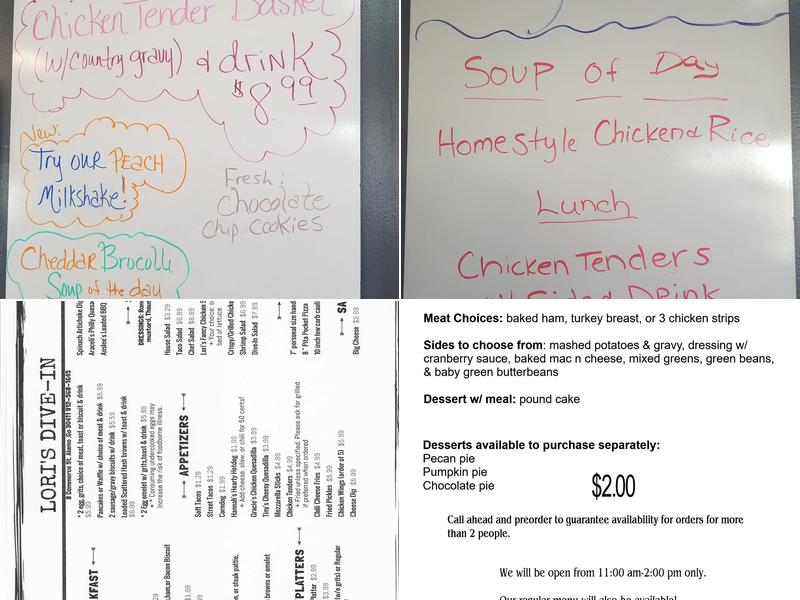 Chicken Tender Basket
(w/country gravy) & drink
$8.99
New:
Try our PEACH
Milkshake!
Fresh:
Chocolate
chip cookies
Cheddar Brocolli
Soup of the day
Soup of Day
Homestyle Chicken & Rice
Lunch
Chicken Tenders
Drink
LORI'S DIVE-IN
8 Commerce St. Alamo, Ga 30411 912-568-1645
* 2 egg, grits, choice of meat, toast or biscuit & drink
$5.99
Pancakes or Waffle w/ choice of meat & drink $5.99
2 sausage/gravy biscuits w/ drink $5.59
Loaded Scattered Hash browns w/ toast & drink
$6.99
* 2 Egg omelet w/ grits, toast & drink $5.99
* Consuming undercooked eggs may
increase the risk of foodborne illness.
APPETIZERS
Soft Tacos $1.29
Street Tacos $1.29
Corndog $1.99
Hannah's Hearty Hotdog $1.99
+ Add cheese, slaw, or chili for 50 cents!
Gracie's Chicken Quesadilla $3.99
Tiny's Cheesy Quesadilla $3.99
Mozzarella Sticks $4.99
Chicken Tenders $4.99
+ Fried unless specified. Please ask for grilled
if preferred when ordered
Chili Cheese Fries $4.99
Fried Pickles $5.99
Chicken Wings (order of 5) $5.99
Cheese Dip $5.99
Spinach Artichoke Dip
Araceli's Philly Quesa
Anslee's Loaded BBQ
DRESSINGS: Ranch
mustard, Thous
House Salad $3.29
Taco Salad $6.99
Chef Salad $6.99
Lori's Fancy Chicken S
+ Your choice: 
bed of lettuce
Crispy/Grilled Chicke
Shrimp Salad $8.99
Dive-In Salad $7.99
7" personal size hand
8 " Pita Pocket Pizza
10 inch low carb cauli
SA
Big Cheese $2.99
KFAST
Ham, or Bacon Biscuit
n, or steak pattie,
browns or omelet
PLATTERS
Platter $2.99
w/o grits) or Regular
Meat Choices: baked ham, turkey breast, or 3 chicken strips
Sides to choose from: mashed potatoes & gravy, dressing w/
cranberry sauce, baked mac n cheese, mixed greens, green beans,
& baby green butterbeans
Dessert w/ meal: pound cake
Desserts available to purchase separately:
Pecan pie
Pumpkin pie
Chocolate pie
$2.00
Call ahead and preorder to guarantee availability for orders for more
than 2 people.
We will be open from 11:00 am-2:00 pm only.
Our regular menu will also be available!